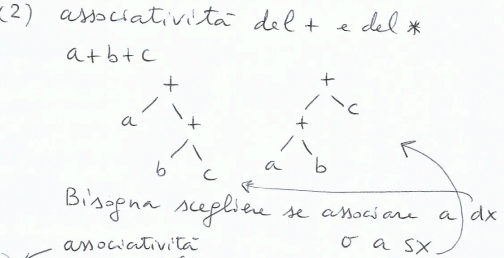 (2) associatività del + e del *
a+b+c
+ +
a + + c
b c a b
Bisogna scegliere se associare a dx
associatività o a sx